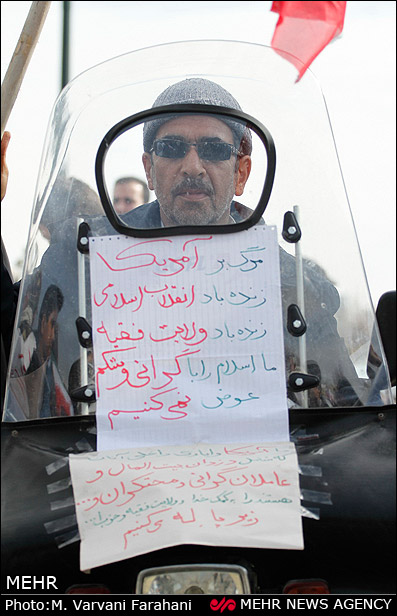 مرگ بر آمریکا
زنده باد انقلاب اسلامی
زنده باد ولایت فقیه
ما اسلام را با گرانی و شکم
عوض نمی کنیم
عاملان گرانی و محتکران و...
هستند را به کمک خدا و ولایت فقیه و
زیر پا له می کنیم
MEHR
MEHR
Photo:M. Varvani Farahani
MEHR NEWS AGENCY